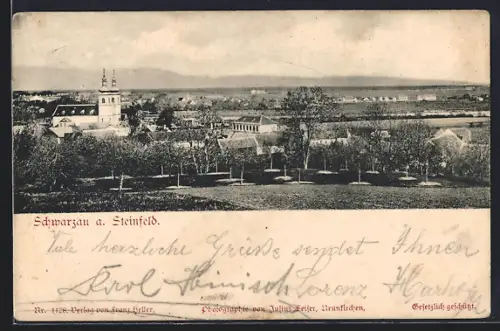 Schwarzau a. Steinfeld.
Viele herzliche Grüße sendet Ihnen
Lorenz
Nr. 1128. Verlag von Franz Heller. Photographie von Julius Zeiser, Neunkirchen. Gesetzlich geschützt.